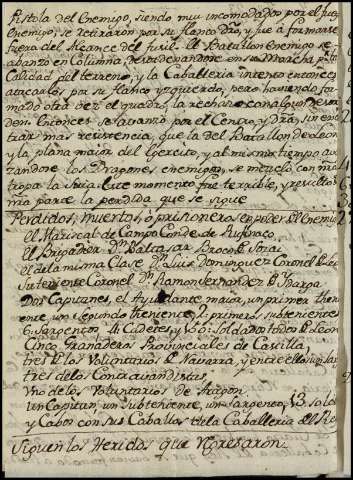 Pistola del Enemigo, siendo muy incomodados por el fuego
Enemigo, se retiraron por su flanco dro, y fue a formarse
fuera del Alcance del fusil. El Batallon Enemigo se
abanzo en Columna, desordenandose en su Marcha p.r la
Calidad del terreno, y la Caballeria intento entonces
atacarlos por su flanco yzquierdo, pero haviendo for
mado otra vez el quadro, la rechazo con algun desor
den. Entonces se abanzo por el Centro, y dra, sin encon
trar mas resistencia, que la del Batallon de Leon
y la plana maior del Exercito, y al mismo tiempo aban
zandose los Dragones enemigos, se mezclo con nra
tropa la suia. Este momento fue terrible, y resulto de
mia parte la perdida que se sigue
Perdidos, muertos, o prisioneros en poder del Enemigo
El Mariscal de Campo Conde de Rufinac
El Brigadier Dn. Baltasar
El de la misma Clase Dn. Luis Dominguez Coronel de Leon
Su teniente Coronel Dn. Ramon Fernandez
Dos Capitanes, el Ayudante maior, un primer thení
ente, un segundo theniente, 2 primeros subtenientes
6 Sargentos, 4 Cadetes, y Soldados todos de Leon
Cinco Granaderos Provinciales de Castilla,
tres de los Voluntarios de Navarra, y entre ellos un sar
tres de los Contravandistas
Uno de los Voluntarios de Aragon
Un Capitan, un subteniente, un sargento, 13 sold
y Cabos con sus Caballos de la Caballeria del Rey
Siguen los Heridos que regresaron